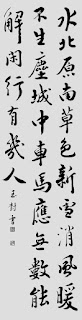 水北原南草色新雪消風暖
不生塵城中車馬應無數能
解閑行有幾人